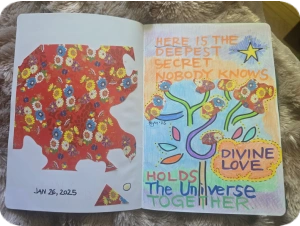 JAN 26, 2025
HERE IS THE
DEEPEST
SECRET
NOBODY KNOWS
DIVINE
LOVE
HOLDS
The Universe
TOGETHER